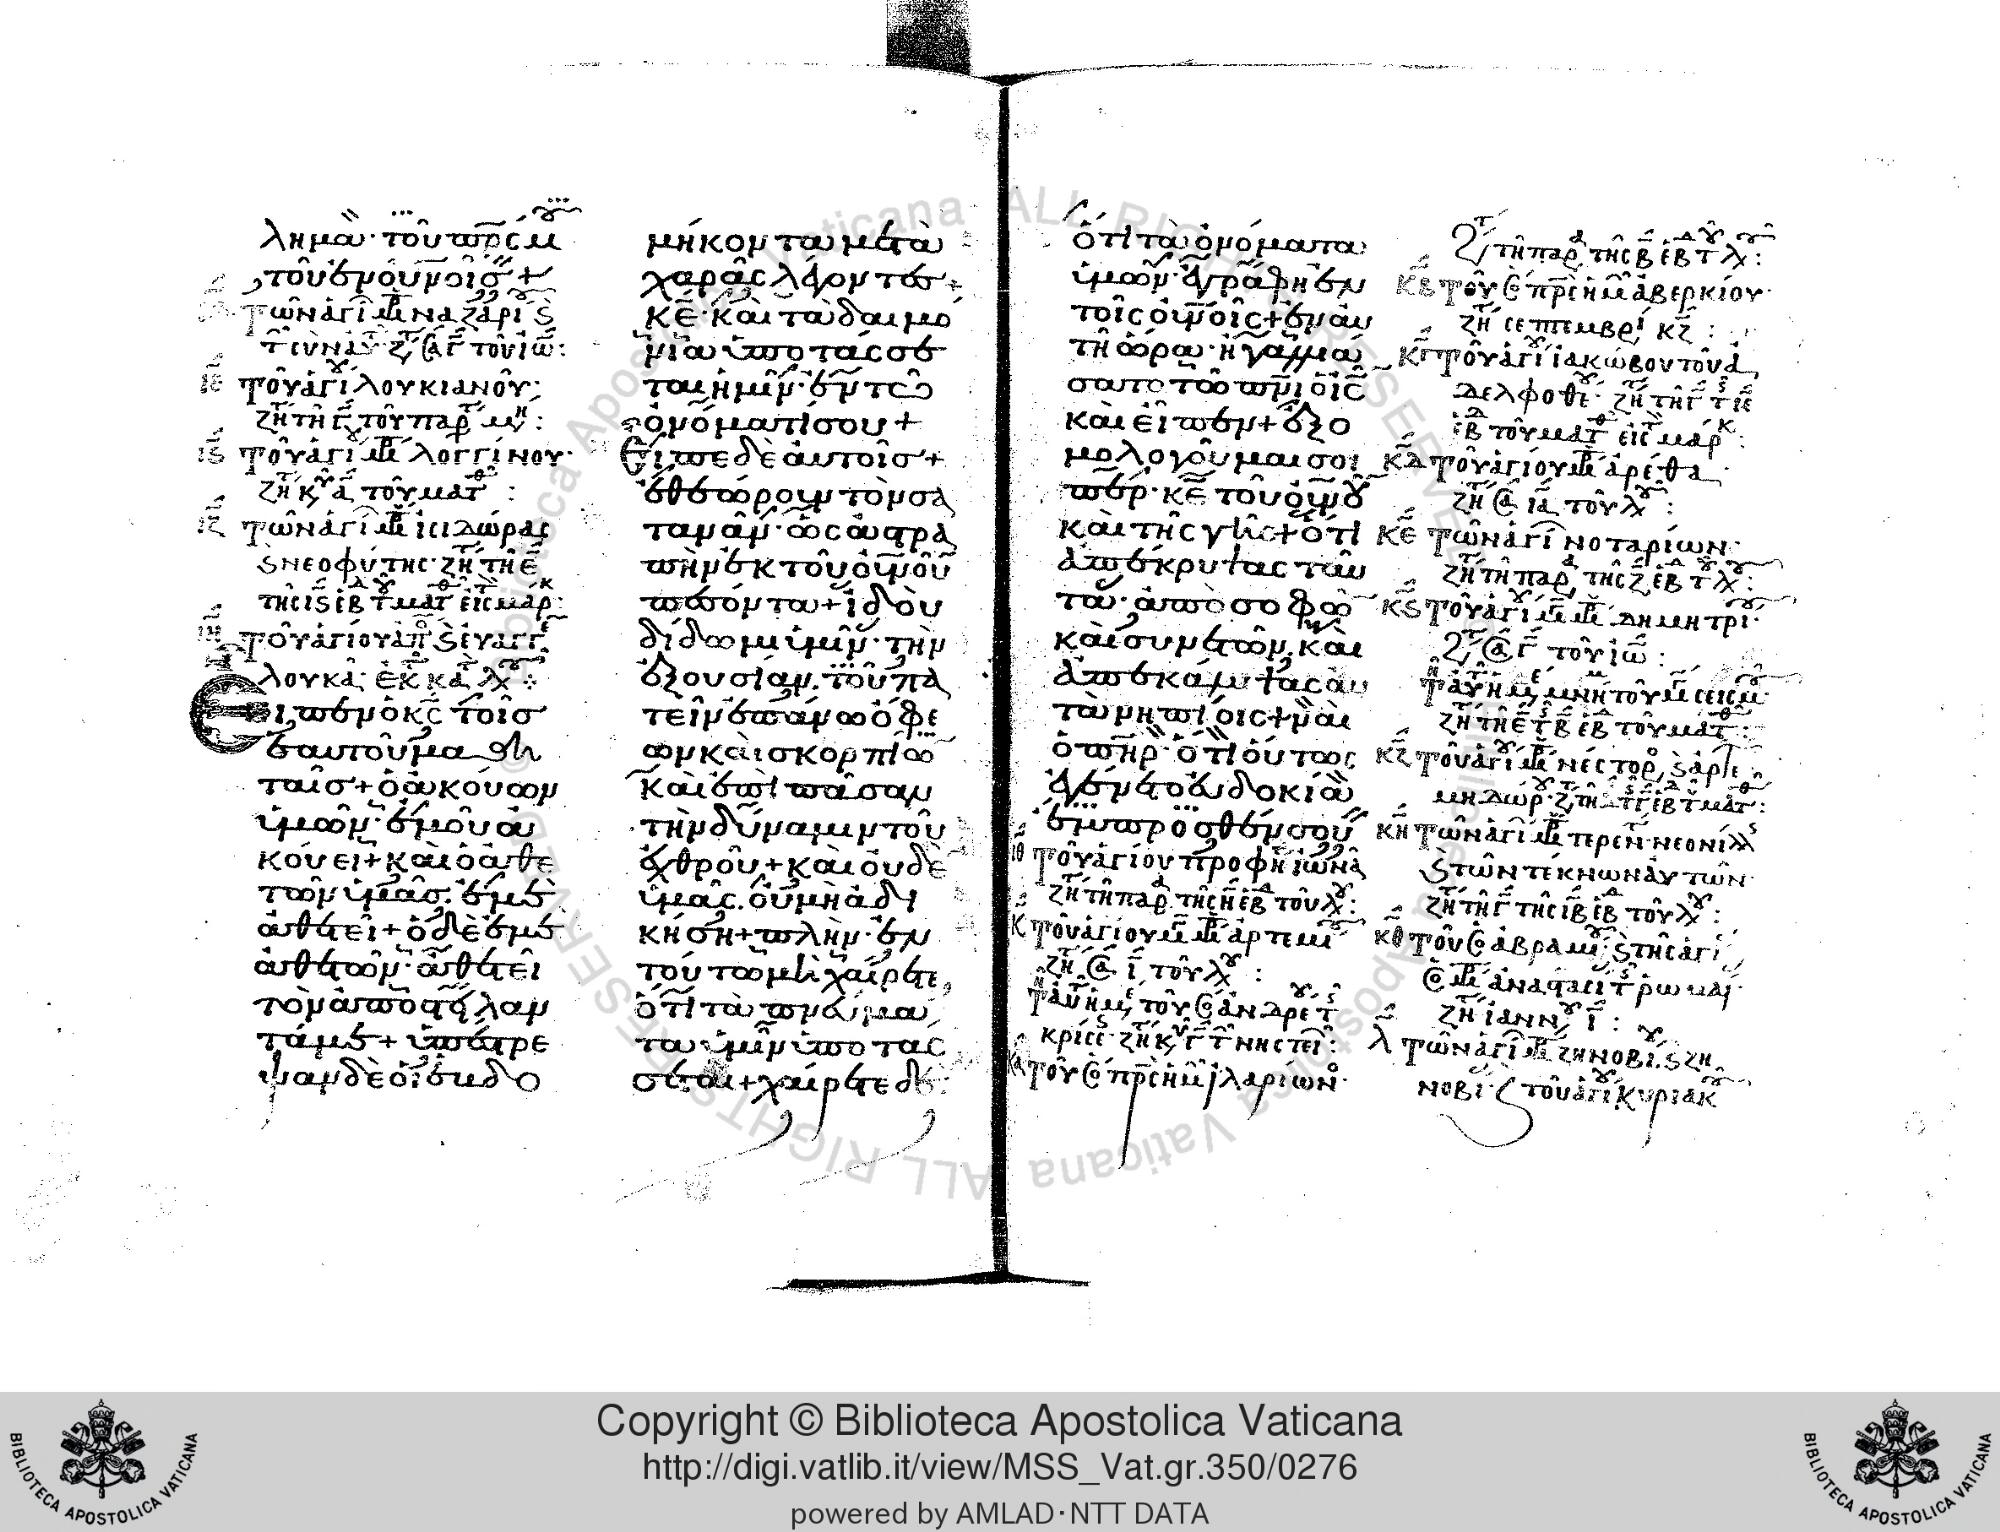 λημα· τοῦ πρς μ
τοῦ ἐν οὐνοις +
τῶν ἁγι μ ναζαρι
ιε τοῦ ἁγι λουκιανοῦ·
ζη τη γ τοῦ παρ
ις τοῦ ἁγι μ λογγίνου·
ζη κυ α τοῦ ματθ :
ιζ τῶν ἁγι μ ισιδώρας
ς νεοφύτης· ζη τῆ ε
της ις εβ τ ματθ εις μαρ :
ιη τοῦ ἁγίου ἀπο ς ευαγγ
λουκᾶ·
Εἶπεν ὁ κς τοῖς
ἑαυτοῦ μαθη
ταῖς + ὁ ἀκούων
ὑμῶν· ἐμοῦ ἀ
κούει + καὶ ὁ ἀθε
τῶν ὑμᾶς· ἐμὲ
ἀθετεῖ + ὁ δὲ ἐμὲ
ἀθετῶν· ἀθετεῖ
τὸν ἀποστείλαν
τά με + ὑπέστρε
ψαν δὲ οἱ ἑβδο
μήκοντα μετὰ
χαρᾶς λέγοντες +
κε· καὶ τὰ δαιμό
νια ὑποτάσσε
ται ἡμῖν· ἐν τῶ
ὀνόματί σου +
Εἶπε δὲ αὐτοῖς +
ἐθεώρουν τὸν σα
τανᾶν· ὡς ἀστρα
πὴν ἐκ τοῦ οὐνοῦ
πεσόντα + ἰδοὺ
δίδωμι ὑμῖν· τὴν
ἐξουσίαν· τοῦ πα
τεῖν ἐπάνω ὄφε
ων καὶ σκορπίω
καὶ ἐπὶ πᾶσαν
τὴν δύναμιν τοῦ
ἐχθροῦ + καὶ οὐδὲ
ὑμᾶς· οὐ μὴ ἀδι
κήση + πλὴν· ἐν
τούτω μὴ χαίρετε,
ὅτι τὰ πνεύμα
τα ὑμῖν ὑποτάσ
σεται + χαίρετε δὲ:
ὅτι τὰ ὀνόματα
ὑμῶν· ἐγράφη ἐν
τοῖς οὐνοῖς + ἐν αὐ
τῆ ὥρα· ἠγαλλιά
σατο τῶ πνι ὁ ις
καὶ εἶπεν + ἐξο
μολογοῦμαι σοι
περ· κε τοῦ οὐνοῦ
καὶ τῆς γῆς + ὅτι
ἀπέκρυψας ταῦ
τα· ἀπὸ σοφῶ
καὶ συνετῶν· καὶ
ἀπεκάλυψας αὐ
τὰ νηπίοις + ναὶ
ὁ πηρ· ὅτι οὕτως
ἐγένετο εὐδοκία
ἔμπροσθέν σου
ιθ τοῦ ἁγίου προφη ἰωνᾶ
ζη τῆ παρ της η εβδ τοῦ λου:
κ τοῦ ἁγίου μ μ ἀρτεμι
ζη Σα ι τοῦ λου :
τ αυ ημε, τοῦ ὁ ἀνδρε τ
κρισε· ζη κυ γ τ νηστει :
κα τοῦ ὁ πρς ημ ιλαρίων·
ζη τῆ παρ της β εβδ τ λου:
κβ τοῦ ὁ πρς ημ ἀβερκίου·
ζη σεπτεμβρι κζ :
κγ τοῦ ἁγι ἰακώβου τοῦ ἀ
δελφοθε· ζη τη ς τ ιε
εβ τοῦ ματθ εις μαρ :
κδ τοῦ ἁγίου μ ἀρέθα·
ζη Σα ια τοῦ λου :
κε τῶν ἁγι νοταρίων·
ζη τῆ παρ της ζ εβ τ λου:
κς τοῦ ἁγι μ μ δημητρι·
ζ Σα γ τοῦ ιω :
τ αυ ημ, μνη τοῦ μ σεισμ·
ζη τη ε τ β εβ τοῦ ματθ :
κζ τοῦ ἁγι μ νέστορ, ς ἀρτε
κη τῶν ἁγι μ τερεν νεονιλλ
ς τῶν τέκνων αὐτῶν·
ζη τη γ της ιβ εβ τοῦ λου :
κθ τοῦ ὁ ἀβραμι· ς της ἁγι
ὁ μ ἀναστασι τ ρωμαι·
ζη ιανν ι :
λ τῶν ἁγι μ ζηνοβι. ς ζη
νοβι· ζ τοῦ ἁγι κυριακ
Copyright © Biblioteca Apostolica Vaticana
http://digi.vatlib.it/view/MSS_Vat.gr.350/0276
powered by AMLAD·NTT DATA
BIBLIOTECA APOSTOLICA VATICANA
BIBLIOTECA APOSTOLICA VATICANA